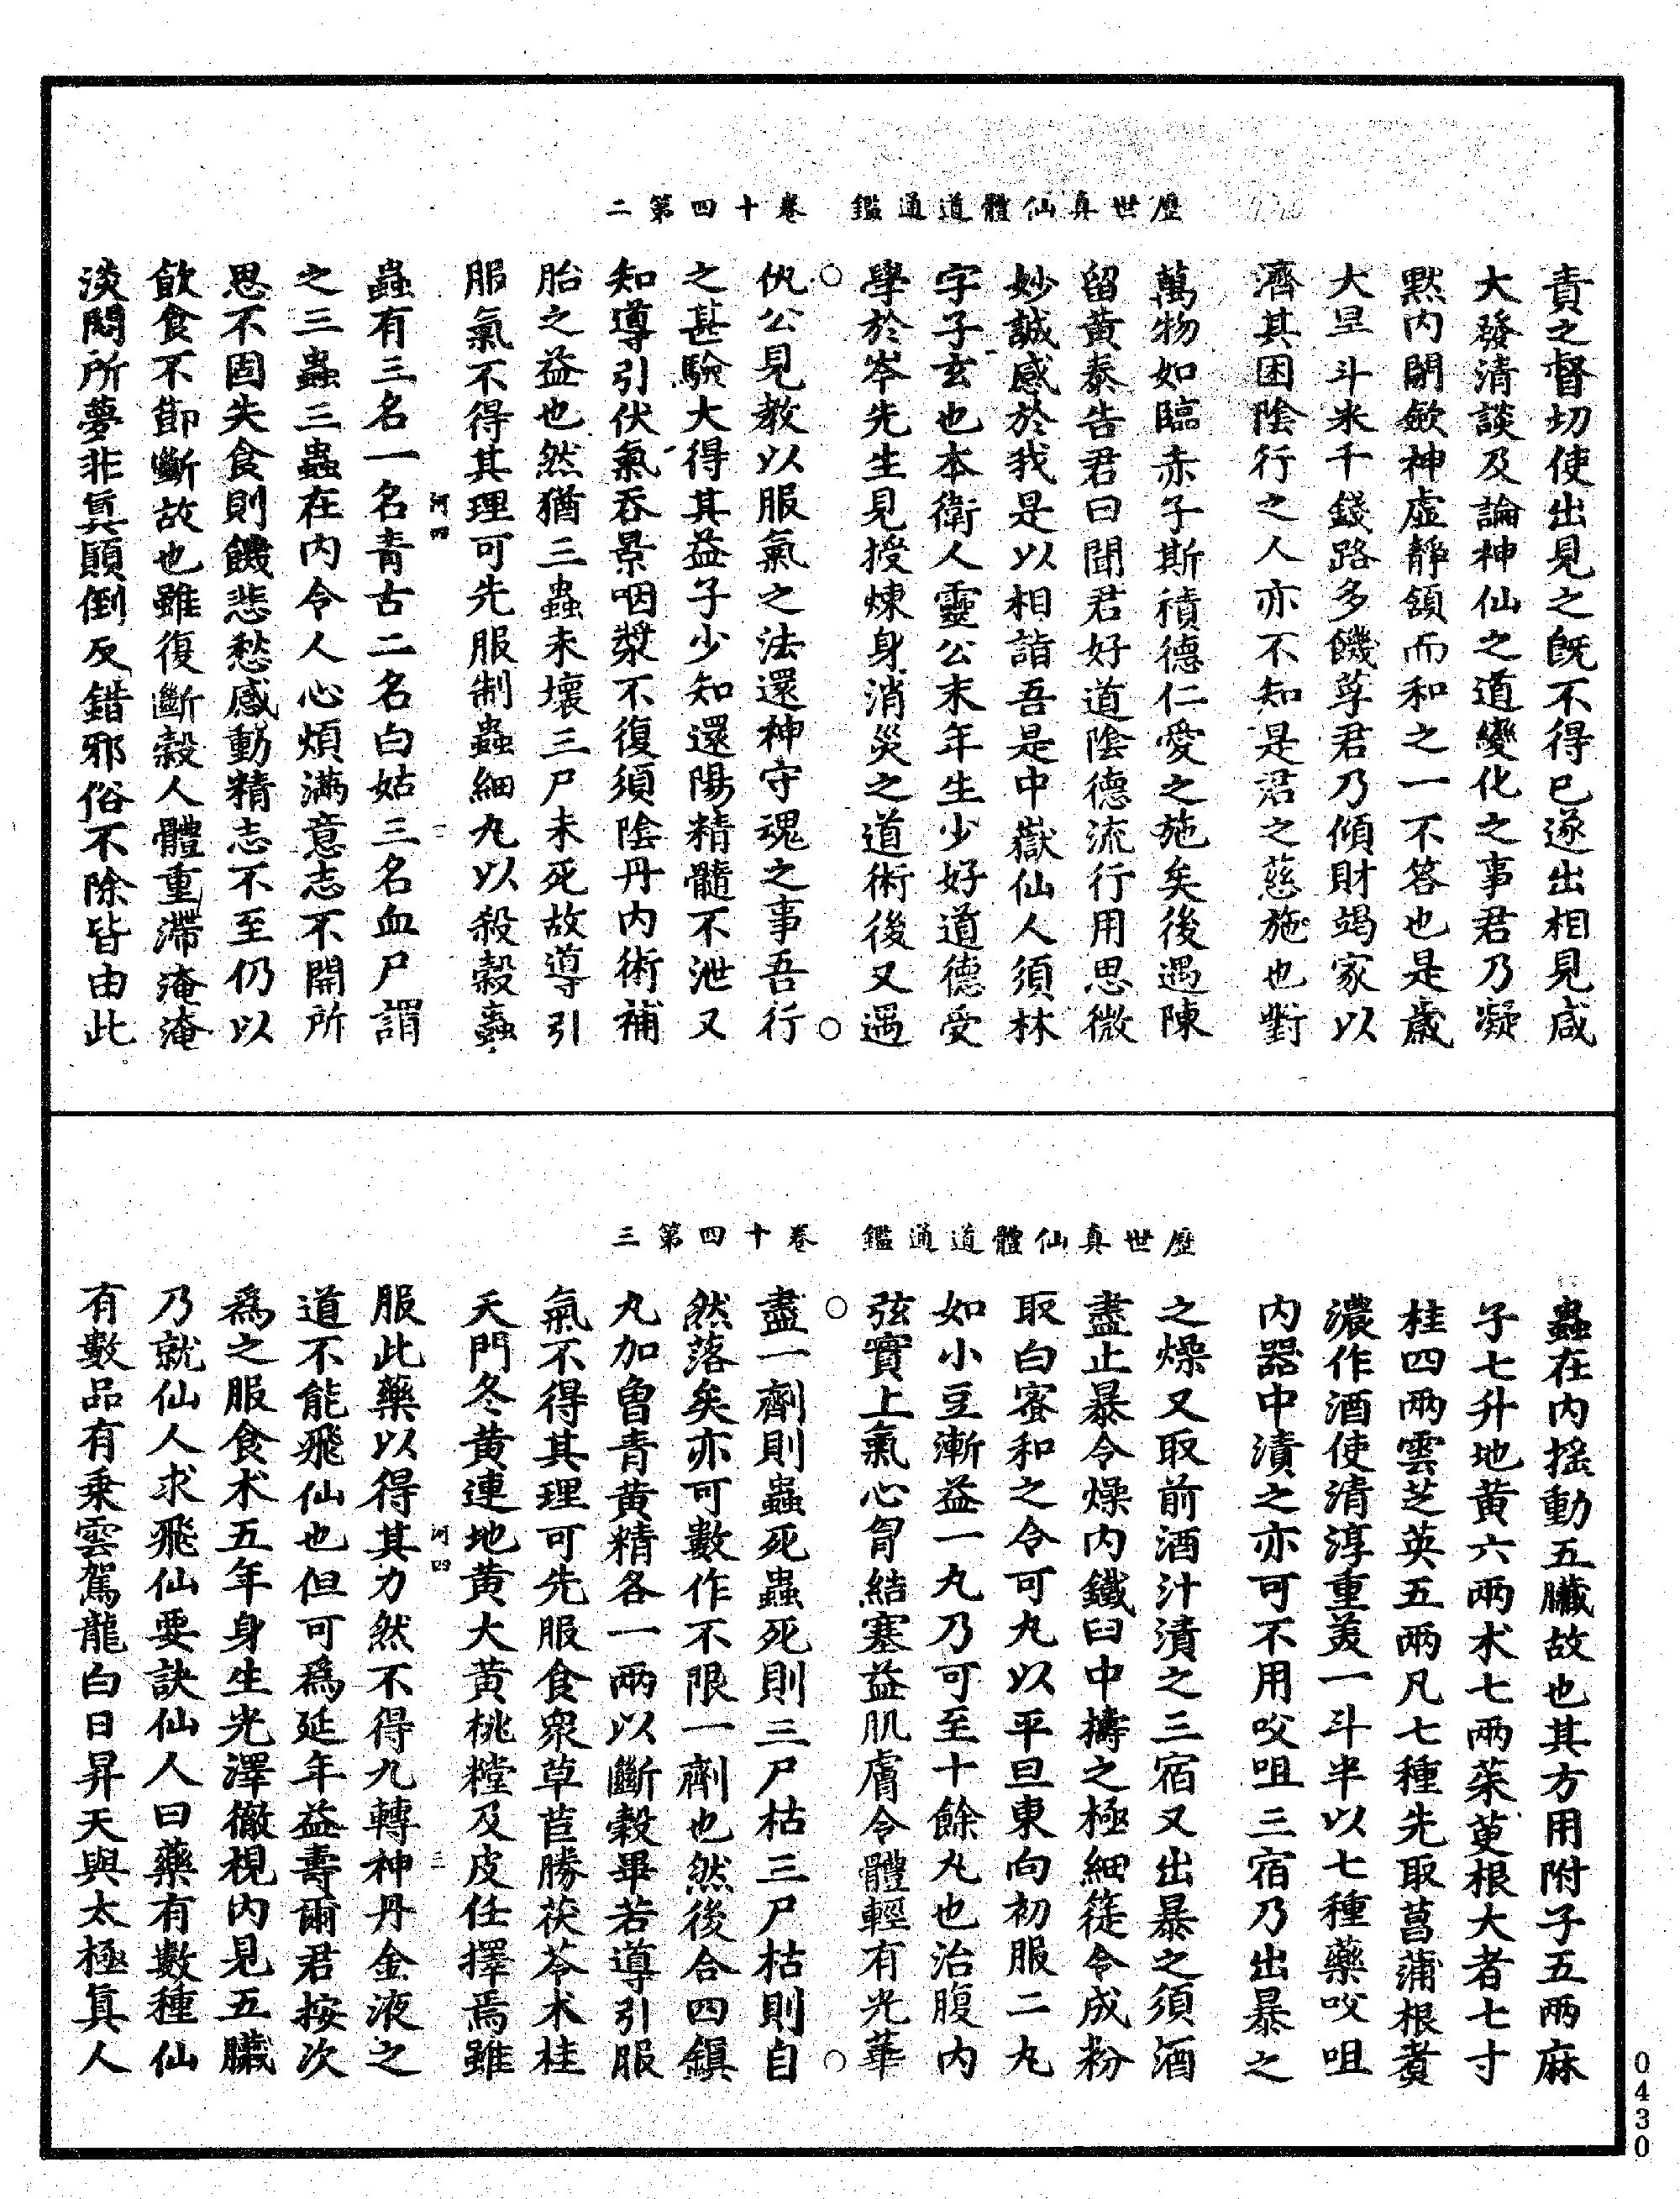 歷世真仙體道通鑑　卷十四第二
責之督切使出見之旣不得已遂出相見咸
大發清談及論神仙之道變化之事君乃凝
黙内閉歛神虛靜頷而和之一不答也是歲
大旱斗米千錢路多饑莩君乃傾財竭家以
濟其困陰行之人亦不知是君之慈施也對
萬物如臨赤子斯積德仁愛之施矣後遇陳
留黃泰告君曰聞君好道陰德流行用思微
妙誠感於我是以相詣吾是中嶽仙人須林
字子玄也本衛人靈公末年生少好道德受
學於岑先生見授煉身消災之道術後又遇
仇公見教以服氣之法還神守魂之事吾行
之甚驗大得其益子少知還陽精髓不泄又
知導引伏氣吞景咽漿不復須陰丹内術補
胎之益也然猶三蟲未壞三尸未死故導引
服氣不得其理可先服制蟲細丸以殺穀蟲
河四
二
蟲有三名一名青古二名白姑三名血尸謂
之三蟲三蟲在内令人心煩滿意志不開所
思不固失食則饑悲愁感動精志不至仍以
飲食不節斷故也雖復斷穀人體重滯淹淹
淡悶所夢非眞顚倒反錯邪俗不除皆由此
歷世真仙體道通鑑　卷十四第三
蟲在内揺動五臟故也其方用附子五兩麻
子七升地黃六兩术七兩茱萸根大者七寸
桂四兩雲芝英五兩凡七種先取菖蒲根煑
濃作酒使清淳重美一斗半以七種藥㕮咀
内器中漬之亦可不用㕮咀三宿乃出暴之
之燥又取前酒汁漬之三宿又出暴之須酒
盡止暴令燥内鐵臼中擣之極細篵令成粉
取白蜜和之令可丸以平旦東向初服二丸
如小豆漸益一丸乃可至十餘丸也治腹内
弦實上氣心胷結塞益肌膚令體輕有光華
盡一劑則蟲死蟲死則三尸枯三尸枯則自
然落矣亦可數作不限一劑也然後合四鎭
丸加曾青黃精各一兩以斷穀畢若導引服
氣不得其理可先服食衆草苣勝茯苓术桂
天門冬黃連地黃大黃桃䊑及皮任擇焉雖
河四
三
服此藥以得其力然不得九轉神丹金液之
道不能飛仙也但可爲延年益壽爾君按次
爲之服食术五年身生光澤徹視内見五臟
乃就仙人求飛仙要訣仙人曰藥有數種仙
有數品有乗雲駕龍白日昇天與太極眞人
0430